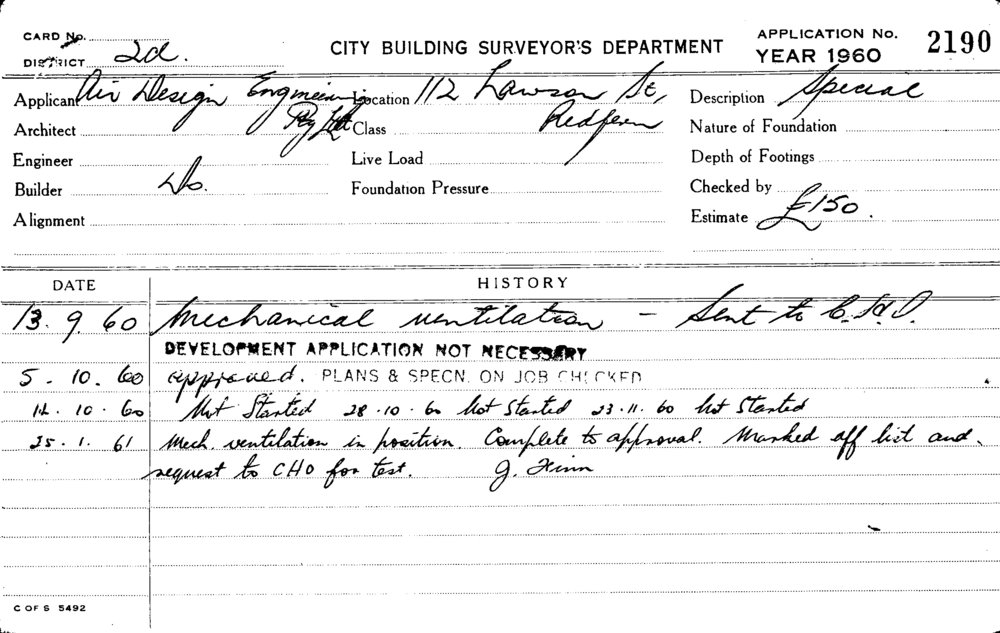 CARD No.
DISTRICT 2d.
CITY BUILDING SURVEYOR'S DEPARTMENT
APPLICATION No. 2190
YEAR 1960
Applicant Air Design Engineering Location 112 Lawson St, Description Special
Pty Ltd Redfern
Architect Class Nature of Foundation
Engineer Live Load Depth of Footings
Builder Do. Foundation Pressure Checked by
Alignment Estimate £150.
DATE HISTORY
13. 9 60 Mechanical ventilation – Sent to C.H.O.
DEVELOPMENT APPLICATION NOT NECESSARY
5. 10. 60 approved. PLANS & SPECN. ON JOB CHECKED
14. 10. 60 Not Started 28.10.60 Not Started 23.11.60 Not Started
25. 1. 61 Mech. ventilation in position. Complete to approval. Marked off list and
request to CHO for test. J.
C OF S 5492